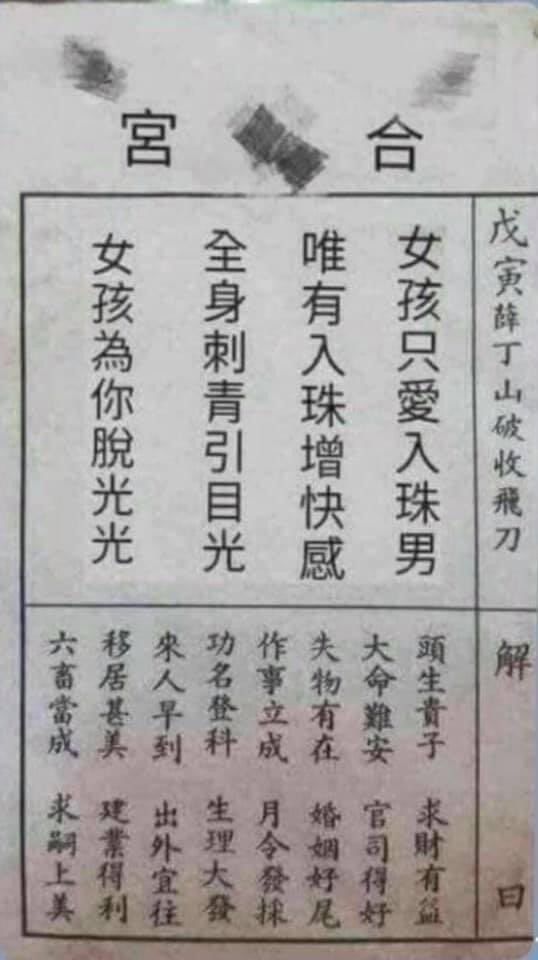 合宮
戊寅薛丁山破收飛刀
女孩只愛入珠男
唯有入珠增快感
全身刺青引目光
女孩為你脫光光
解曰
頭生貴子 求財有益
大命難安 官司得好
失物有在 婚姻好尾
作事立成 月令發採
功名登科 生理大發
來人早到 出外宜往
移居甚美 建業得利
六畜當成 求嗣上美